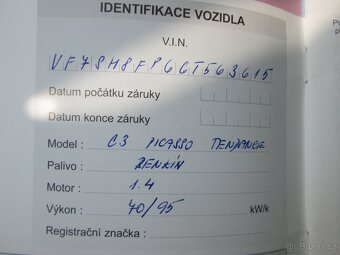 IDENTIFIKACE VOZIDLA
V.I.N.
VF7SH8FP6CT563615
Datum počátku záruky
Datum konce záruky
Model : C3 PICASSO TENDANCE
Palivo : BENKÍN
Motor : 1.4
Výkon : 70/95 kW/k
Registrační značka :